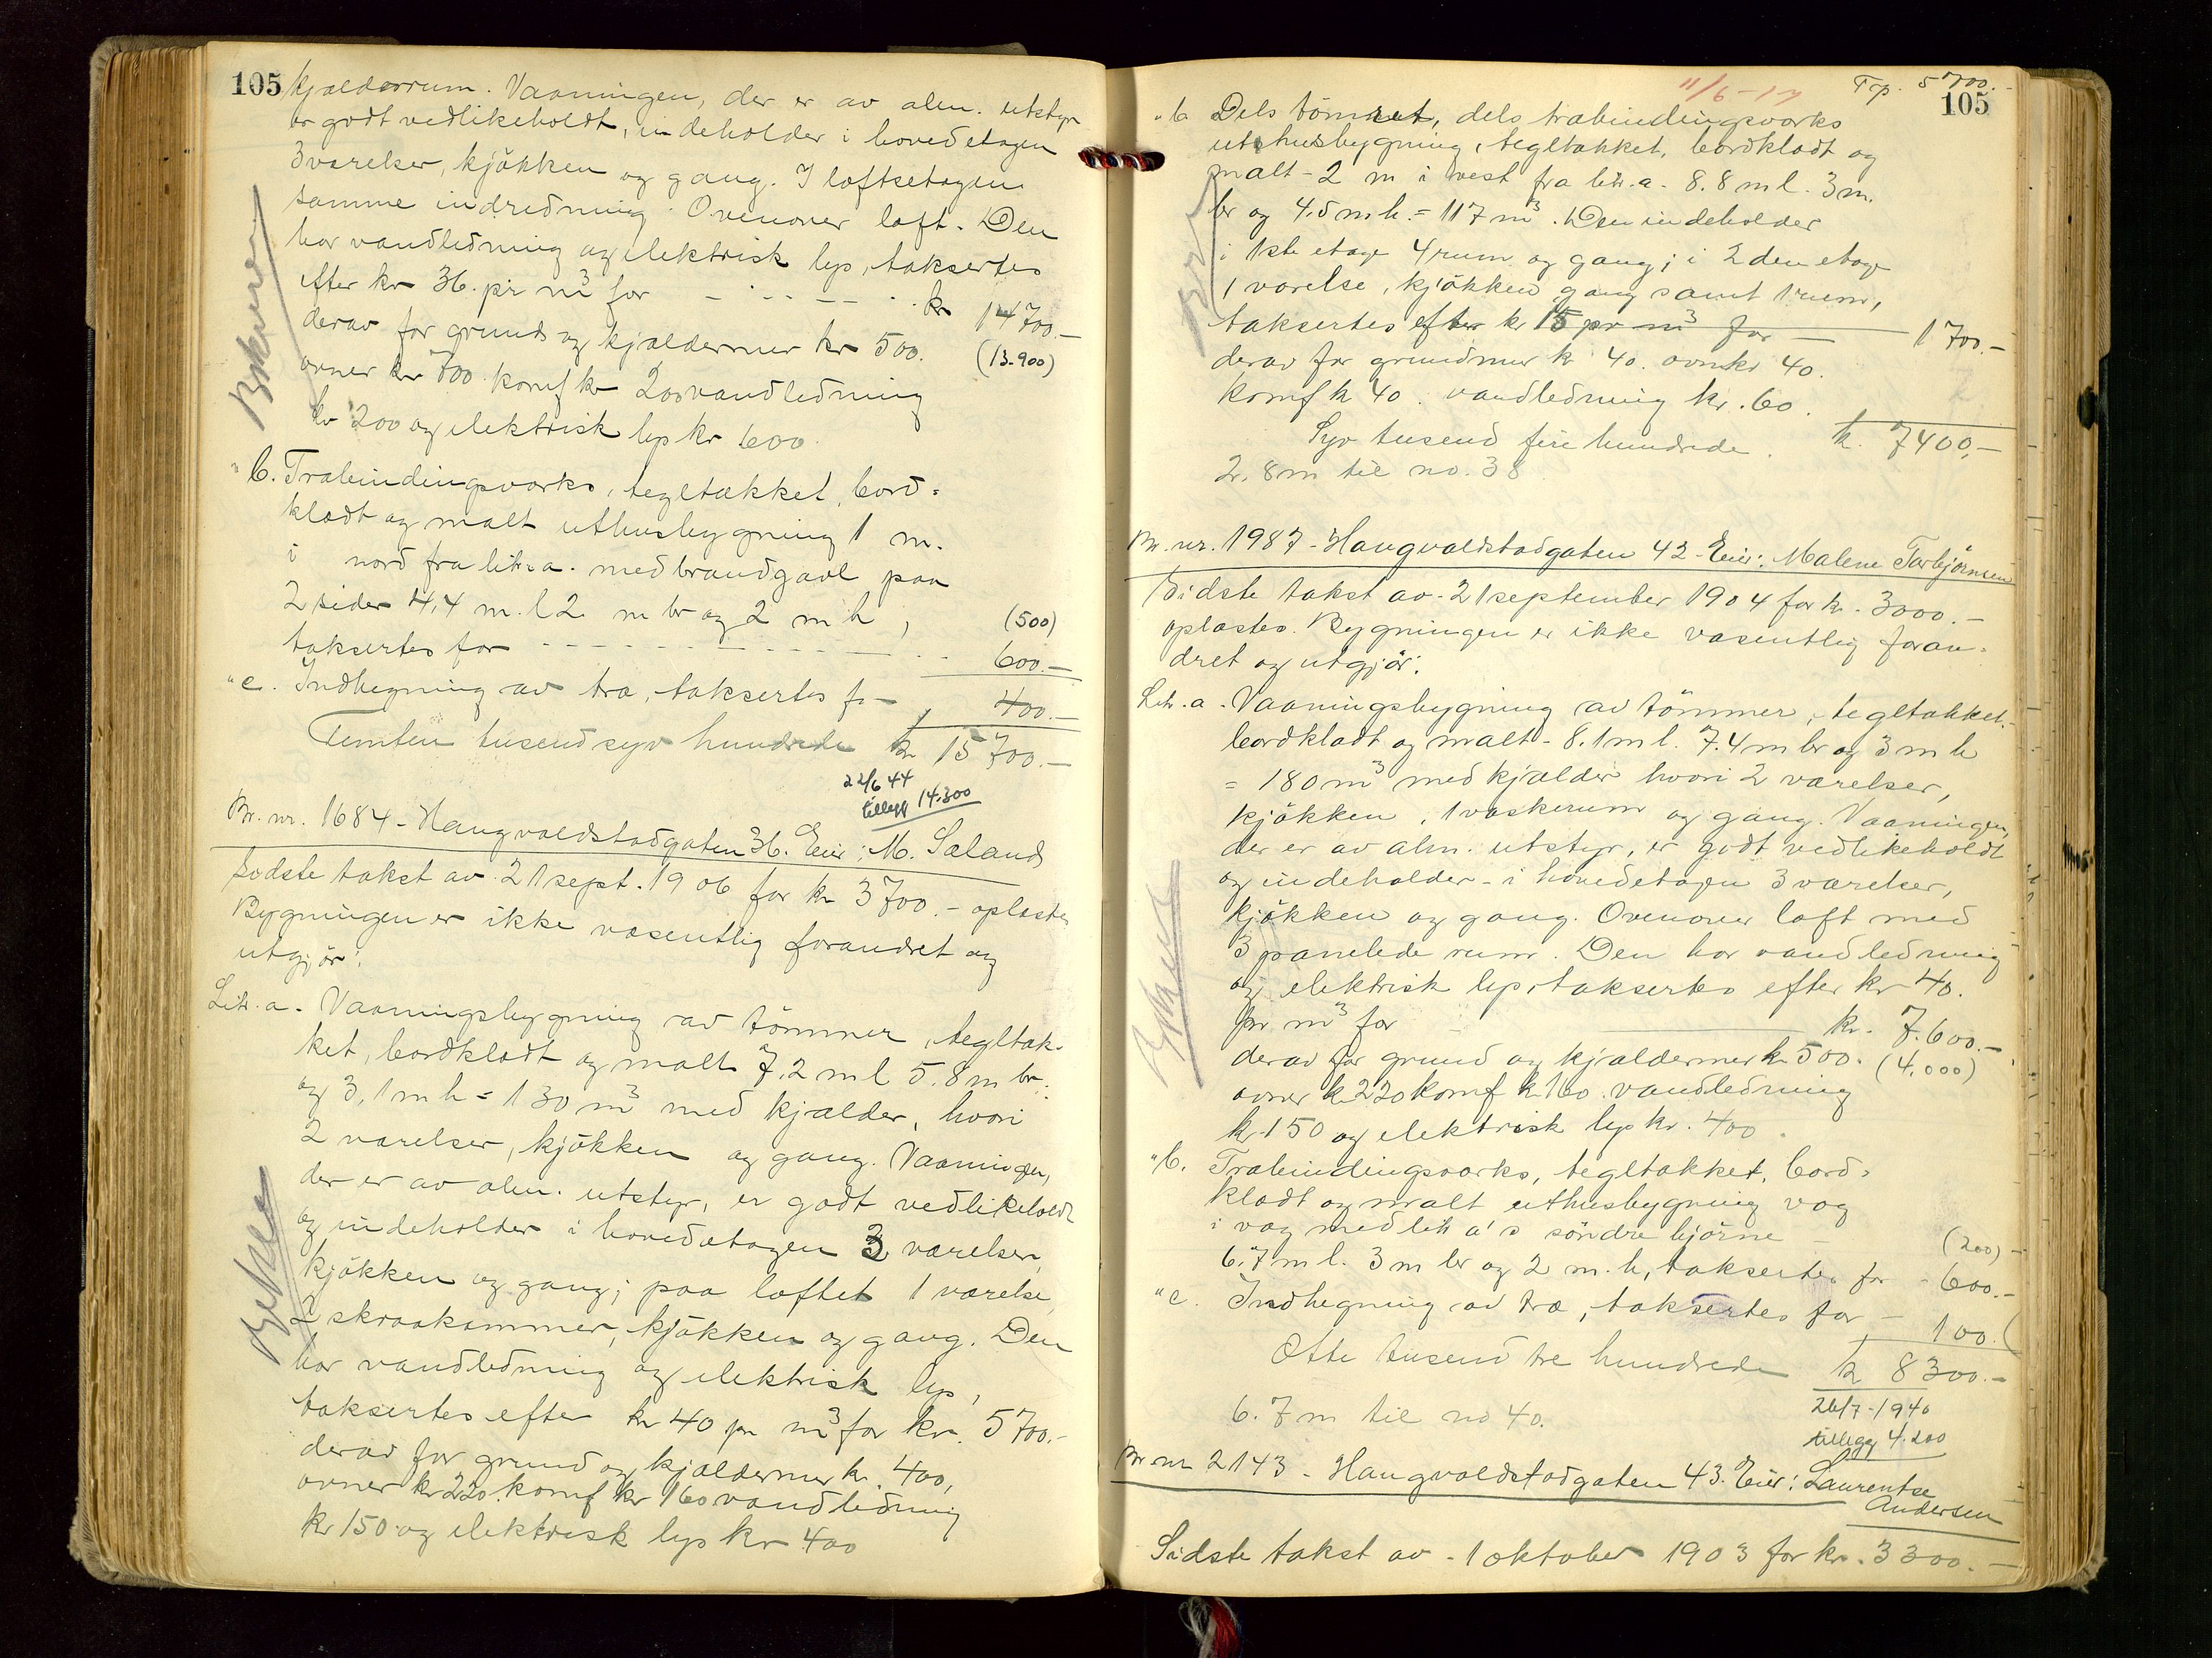 105
kjælderrum. Vaaningen, der er av alm. utstyr
er godt vedlikeholdt, indeholder i hovedetagen
3 værelser, kjökken og gang. I loftsetagen
samme indredning. Ovenover loft. Den
har vandledning og elektrisk lys, takseres
efter kr 36. pr m³ for - - - - kr 14700.-
derav for grund og kjældermur kr 500. (13.900)
ovner kr 700 komf kr 200 vandledning
kr 200 og elektrisk lys kr 600.
" b. Træbindingsværks, tegltækket, bord-
klædt og malt uthusbygning 1 m.
i nord fra litr. a. med brandgavl paa
2 sider 4,4 m. l 2 m br og 2 m h, (500)
takseres for - - - - - - 600.-
" c. Indhegning av træ, takseres for - 400.-
Femten tusend syv hundrede kr 15700.-
22/6 44
tillegg 14.300
Br. nr. 1684 - Haugvaldstadgaten 36. Eier: M. Saland
Sidste takst av 21 sept. 1906 for kr 3700.- oplæstes
Bygningen er ikke væsentlig forandret og
utgjör:
Litr. a. Vaaningsbygning av tömmer, tegltæk-
ket, bordklædt og malt 7,2 m l 5.8 m br.
og 3,1 m h = 130 m³ med kjælder, hvori
2 værelser, kjökken og gang. Vaaningen,
der er av alm. utstyr, er godt vedlikeholdt
og indeholder i hovedetagen 3 værelser,
kjökken og gang; paa loftet 1 værelse,
2 skraakammer, kjökken og gang. Den
har vandledning og elektrisk lys,
takseres efter kr 40 pr m³ for kr. 5700.-
derav for grund og kjældermur kr. 400,
ovner kr 220. komf kr 160 vandledning
kr 150 og elektrisk lys kr 400
11/6-17 Trp. 5700.-
105
" b. Dels tömret, dels træbindingsværks
uthusbygning, tegltækket, bordklædt og
malt - 2 m i vest fra litr. a. 8.8 m l. 3 m.
br og 4,5 m h. = 117 m³. Den indeholder
i 1ste etage 4 rum og gang; i 2den etage
1 værelse, kjökken, gang samt 1 rum,
takseres efter kr 15 pr m³ for - 1700.-
derav for grundmur kr 40. ovn kr 40.
komf kr 40. vandledning kr. 60.
Syv tusend fire hundrede. kr. 7400,-
2.8 m til no. 38
Br. nr. 1987 - Haugvaldstadgaten 42 - Eier: Malene Torbjörnsen
Sidste takst av 21 september 1904 for kr. 3000.-
oplæstes. Bygningen er ikke væsentlig foran-
dret og utgjör:
Litr. a. Vaaningsbygning av tömmer, tegltækket,
bordklædt og malt - 8.1 m l. 7.4 m br og 3 m h
= 180 m³ med kjælder hvori 2 værelser,
kjökken, 1 vaskerum og gang. Vaaningen,
der er av alm. utstyr, er godt vedlikeholdt
og indeholder - i hovedetagen 3 værelser,
kjökken og gang. Ovenover loft med
3 panelede rum. Den har vandledning
og elektrisk lys, takseres efter kr 40.
pr. m³ for kr. 7.600.-
derav for grund og kjældermur kr 500. (4.000)
ovner kr 220 komf kr 160. vandledning
kr. 150 og elektrisk lys kr. 400.
" b. Træbindingsværks, tegltækket, bord-
klædt og malt uthusbygning væg
i væg med litr a's söndre hjörne - (200) -
6.7 m l. 3 m br og 2 m. h, takseres for - 600.-
" c. Indhegning av træ, takseres for - 100.
Otte tusend tre hundrede kr 8300.-
6.7 m til no 40.
26/7-1940
tillegg 4.200
Br. nr 2143 - Haugvaldstadgaten 43. Eier: Laurentse
Andersen
Sidste takst av - 1 oktober 1903 for kr. 3300.-